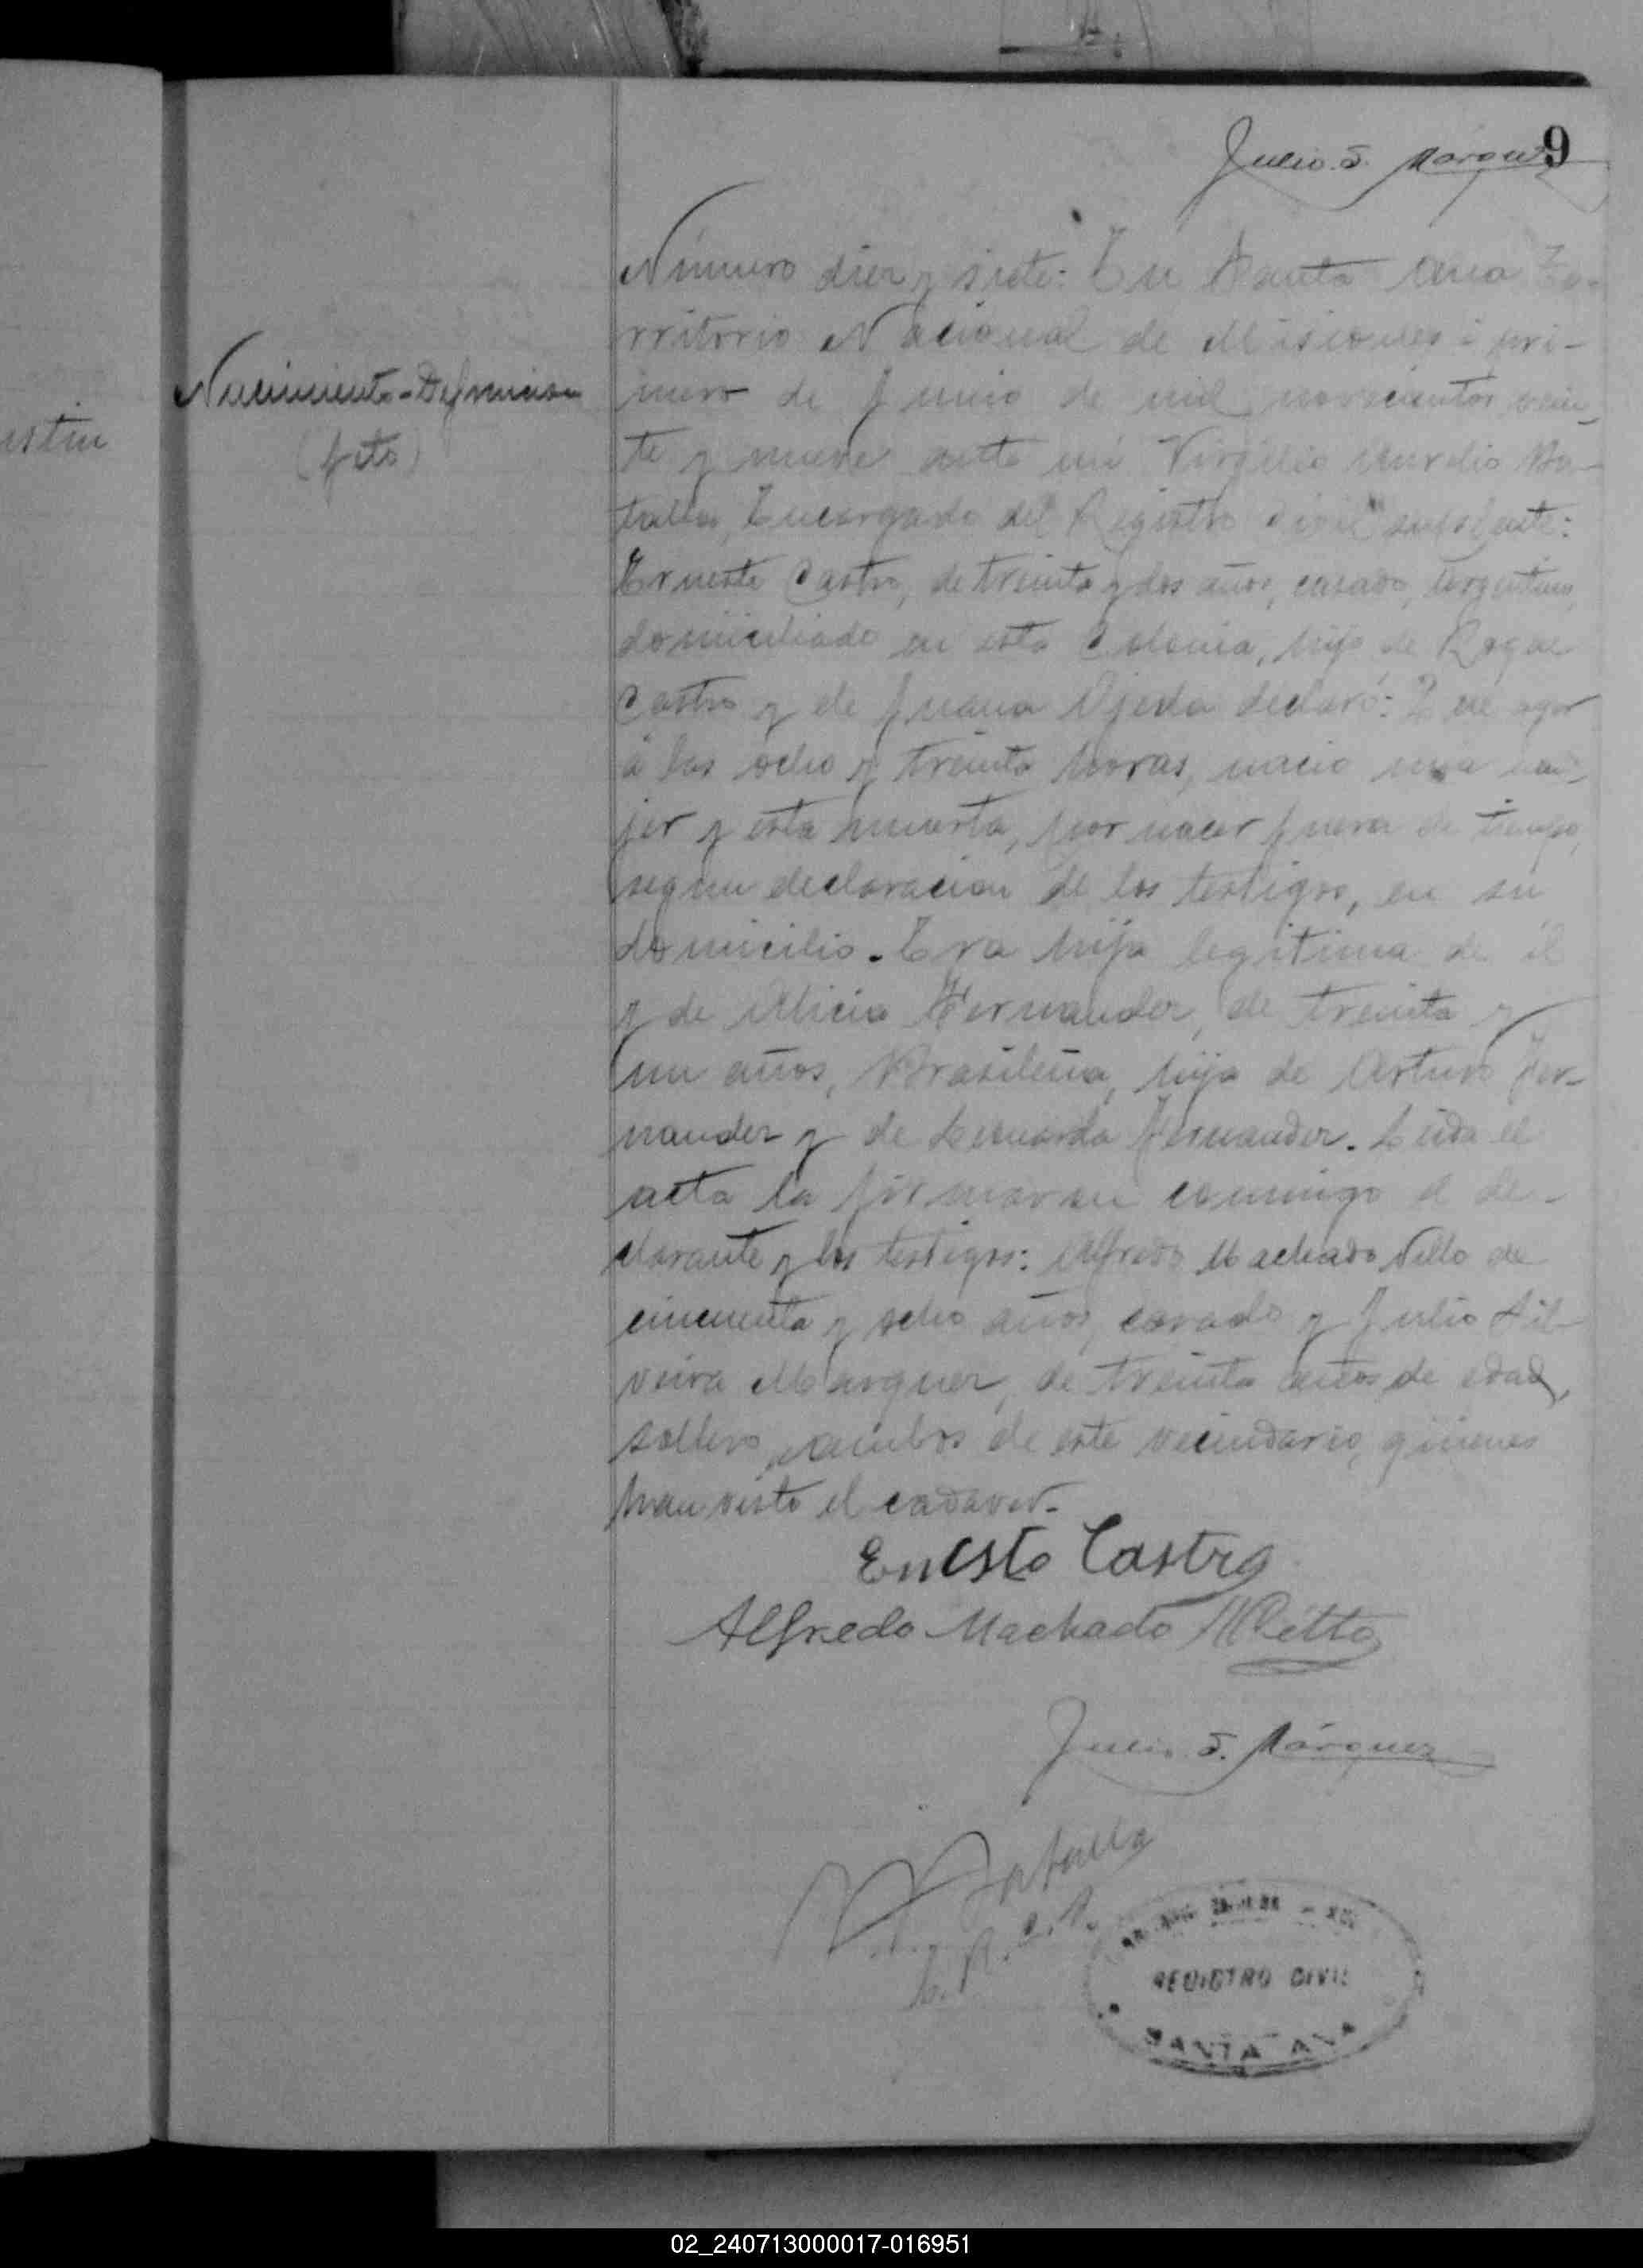 Julio S. Marquez
9
Número diez y siete: En Santa Ana Te-
rritorio Nacional de Misiones á pri-
mero de Junio de mil novecientos vein-
te y nueve ante mi Virgilio Aurelio Ba-
talla, Encargado del Registro Civil suplente:
Ernesto Castro, de treinta y dos años, casado, Argentino,
domiciliado en esta Colonia, hijo de Roque
Castro y de Juana Ojeda declaró: Que ayer
á las ocho y treinta horas, nació una mu-
jer y esta muerta, por nacer fuera de tiempo,
segun declaracion de los testigos, en su
domicilio. Era hija legitima de él
y de Alicia Fernandez, de treinta y
un años, Brasileña, hija de Arturo Fer-
nandez y de Leonarda Fernandez. Leida el
acta la firmaron conmigo el de-
clarante y los testigos: Alfredo Machado Netto de
cincuenta y ocho años, casado y Julio Sil-
veira Marquez, de treinta años de edad,
soltero, ambos de este vecindario, quienes
han visto el cadaver.
Nacimiento-Defuncion
(feto)
Ernesto Castro
Alfredo Machado Netto
Julio S. Márquez
Batalla
REGISTRO CIVIL
SANTA ANA
02_240713000017-016951